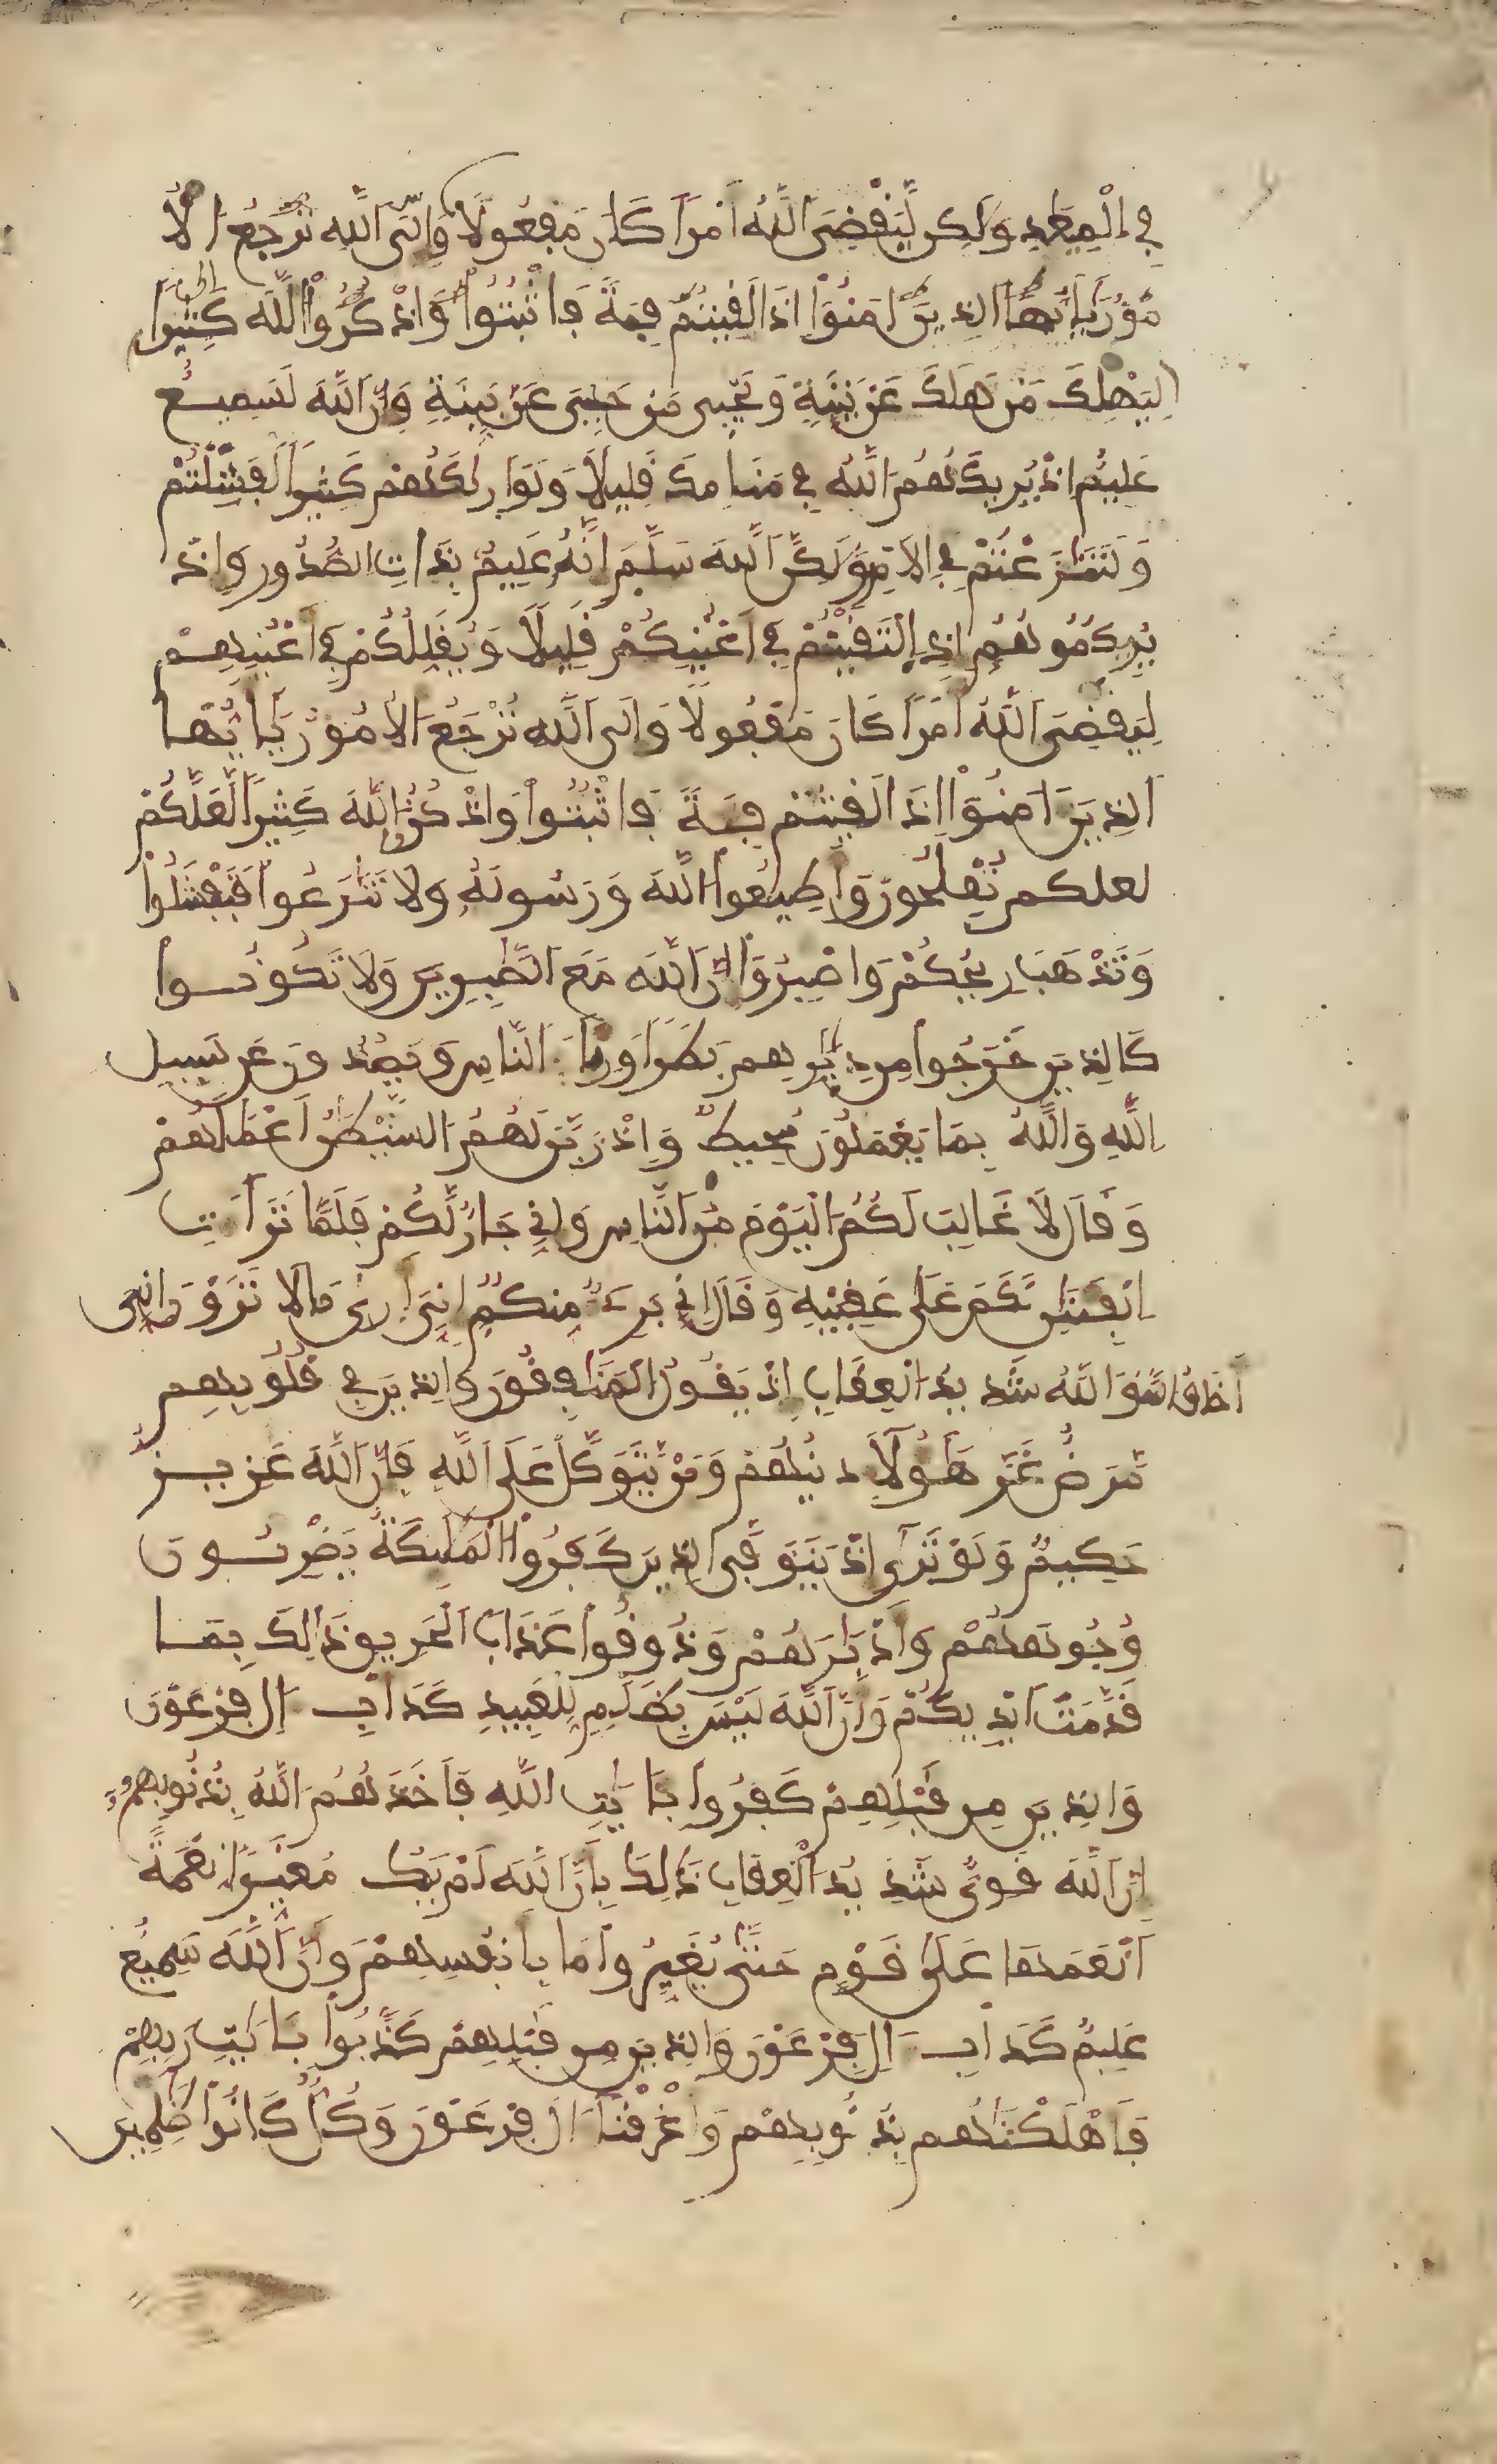 فِي اِ۬لْمِيعَٰدِ وَلَٰكِن لِّيَقْضِيَ اَ۬للَّهُ أَمْراً كَانَ مَفْعُولًا وَإِلَى اَ۬للَّهِ تُرْجَعُ اُ۬لْأُ
مُورُ يَٰأَيُّهَا اَ۬لذِينَ ءَامَنُوٓاْ إِذَا لَقِيتُمْ فِئَةً فَاثْبُتُواْ وَاذْكُرُواْ اُ۬للَّهَ كَثِيراً
لِّيَهْلِكَ مَنْ هَلَكَ عَنۢ بَيِّنَةٍ وَيَحْيَىٰ مَنْ حَيِيَ عَنۢ بَيِّنَةٍ وَإِنَّ اَ۬للَّهَ لَسَمِيعٌ
عَلِيمٌ إِذْ يُرِيكَهُمُ اُ۬للَّهُ فِي مَنَامِكَ قَلِيلًا وَلَوَ اَر۪يٰكَهُمْ كَثِيراً لَّفَشِلْتُمْ
وَلَتَنَٰزَعْتُمْ فِي اِ۬لَامْرِ وَلَٰكِنَّ اَ۬للَّهَ سَلَّمَ إِنَّهُ عَلِيمٌۢ بِذَاتِ اِ۬لصُّدُورِ وَإِذْ
يُرِيكُمُوهُمُ إِذِ اِ۬لْتَقَيْتُمْ فِي أَعْيُنِكُمْ قَلِيلًا وَيُقَلِّلُكُمْ فِي أَعْيُنِهِمْ
لِيَقْضِيَ اَ۬للَّهُ أَمْراً كَانَ مَفْعُولًا وَإِلَى اَ۬للَّهِ تُرْجَعُ اُ۬لُامُورُ يَٰأَيُّهَا
اَ۬لذِينَ ءَامَنُوٓاْ إِذَا لَقِيتُمْ فِئَةً فَاثْبُتُواْ وَاذْكُرُواْ اُ۬للَّهَ كَثِيراً لَّعَلَّكُمْ
لعلكم تُفْلِحُونَ وَأَطِيعُواْ اُ۬للَّهَ وَرَسُولَهُ وَلَا تَنَٰزَعُواْ فَتَفْشَلُواْ
وَتَذْهَبَ رِيحُكُمْ وَاصْبِرُوٓاْ إِنَّ اَ۬للَّهَ مَعَ اَ۬لصَّٰبِرِينَ وَلَا تَكُونُواْ
كَالذِينَ خَرَجُواْ مِن دِيَٰرِهِم بَطَراً وَرِئَآءَ اَ۬لنَّاسِ وَيَصُدُّونَ عَن سَبِيلِ
اِ۬للَّهِ وَاللَّهُ بِمَا يَعْمَلُونَ مُحِيطٌ وَإِذْ زَيَّنَ لَهُمُ اُ۬لشَّيْطَٰنُ أَعْمَٰلَهُمْ
وَقَالَ لَا غَالِبَ لَكُمُ اُ۬لْيَوْمَ مِنَ اَ۬لنَّاسِ وَإِنِّي جَارٌ لَّكُمْ فَلَمَّا تَرَآءَتِ
اِ۬لْفِئَتَٰنِ نَكَصَ عَلَىٰ عَقِبَيْهِ وَقَالَ إِنِّي بَرِيٓءٌ مِّنكُمُ إِنِّيَ أَر۪يٰ مَا لَا تَرَوْنَ إِنِّيَ
أَخَافُ اُ۬للَّهَ وَاللَّهُ شَدِيدُ اُ۬لْعِقَابِ إِذْ يَقُولُ اُ۬لْمُنَٰفِقُونَ وَالذِينَ فِي قُلُوبِهِم
مَّرَضٌ غَرَّ هَٰٓؤُلَآءِ دِينُهُمْ وَمَنْ يَّتَوَكَّلْ عَلَى اَ۬للَّهِ فَإِنَّ اَ۬للَّهَ عَزِيزٌ
حَكِيمٌ وَلَوْ تَر۪ىٰ إِذْ يَتَوَفَّى اَ۬لذِينَ كَفَرُواْ اُ۬لْمَلَٰٓئِكَةُ يَضْرِبُونَ
وُجُوهَهُمْ وَأَدْبَٰرَهُمْ وَذُوقُواْ عَذَابَ اَ۬لْحَرِيقِ ذَٰلِكَ بِمَا
قَدَّمَتَ اَيْدِيكُمْ وَأَنَّ اَ۬للَّهَ لَيْسَ بِظَلَّٰمٍ لِّلْعَبِيدِ كَدَأْبِ ءَالِ فِرْعَوْنَ
وَالذِينَ مِن قَبْلِهِمْ كَفَرُواْ بِـَٔايَٰتِ اِ۬للَّهِ فَأَخَذَهُمُ اُ۬للَّهُ بِذُنُوبِهِمُ
إِنَّ اَ۬للَّهَ قَوِيٌّ شَدِيدُ اُ۬لْعِقَابِ ذَٰلِكَ بِأَنَّ اَ۬للَّهَ لَمْ يَكُ مُغَيِّراً نِّعْمَةً
اَنْعَمَهَا عَلَىٰ قَوْمٍ حَتَّىٰ يُغَيِّرُواْ مَا بِأَنفُسِهِمْ وَأَنَّ اَ۬للَّهَ سَمِيعٌ
عَلِيمٌ كَدَأْبِ ءَالِ فِرْعَوْنَ وَالذِينَ مِن قَبْلِهِمْ كَذَّبُواْ بِـَٔايَٰتِ رَبِّهِمْ
فَأَهْلَكْنَٰهُم بِذُنُوبِهِمْ وَأَغْرَقْنَآ ءَالَ فِرْعَوْنَ وَكُلٌّ كَانُواْ ظَٰلِمِينَ